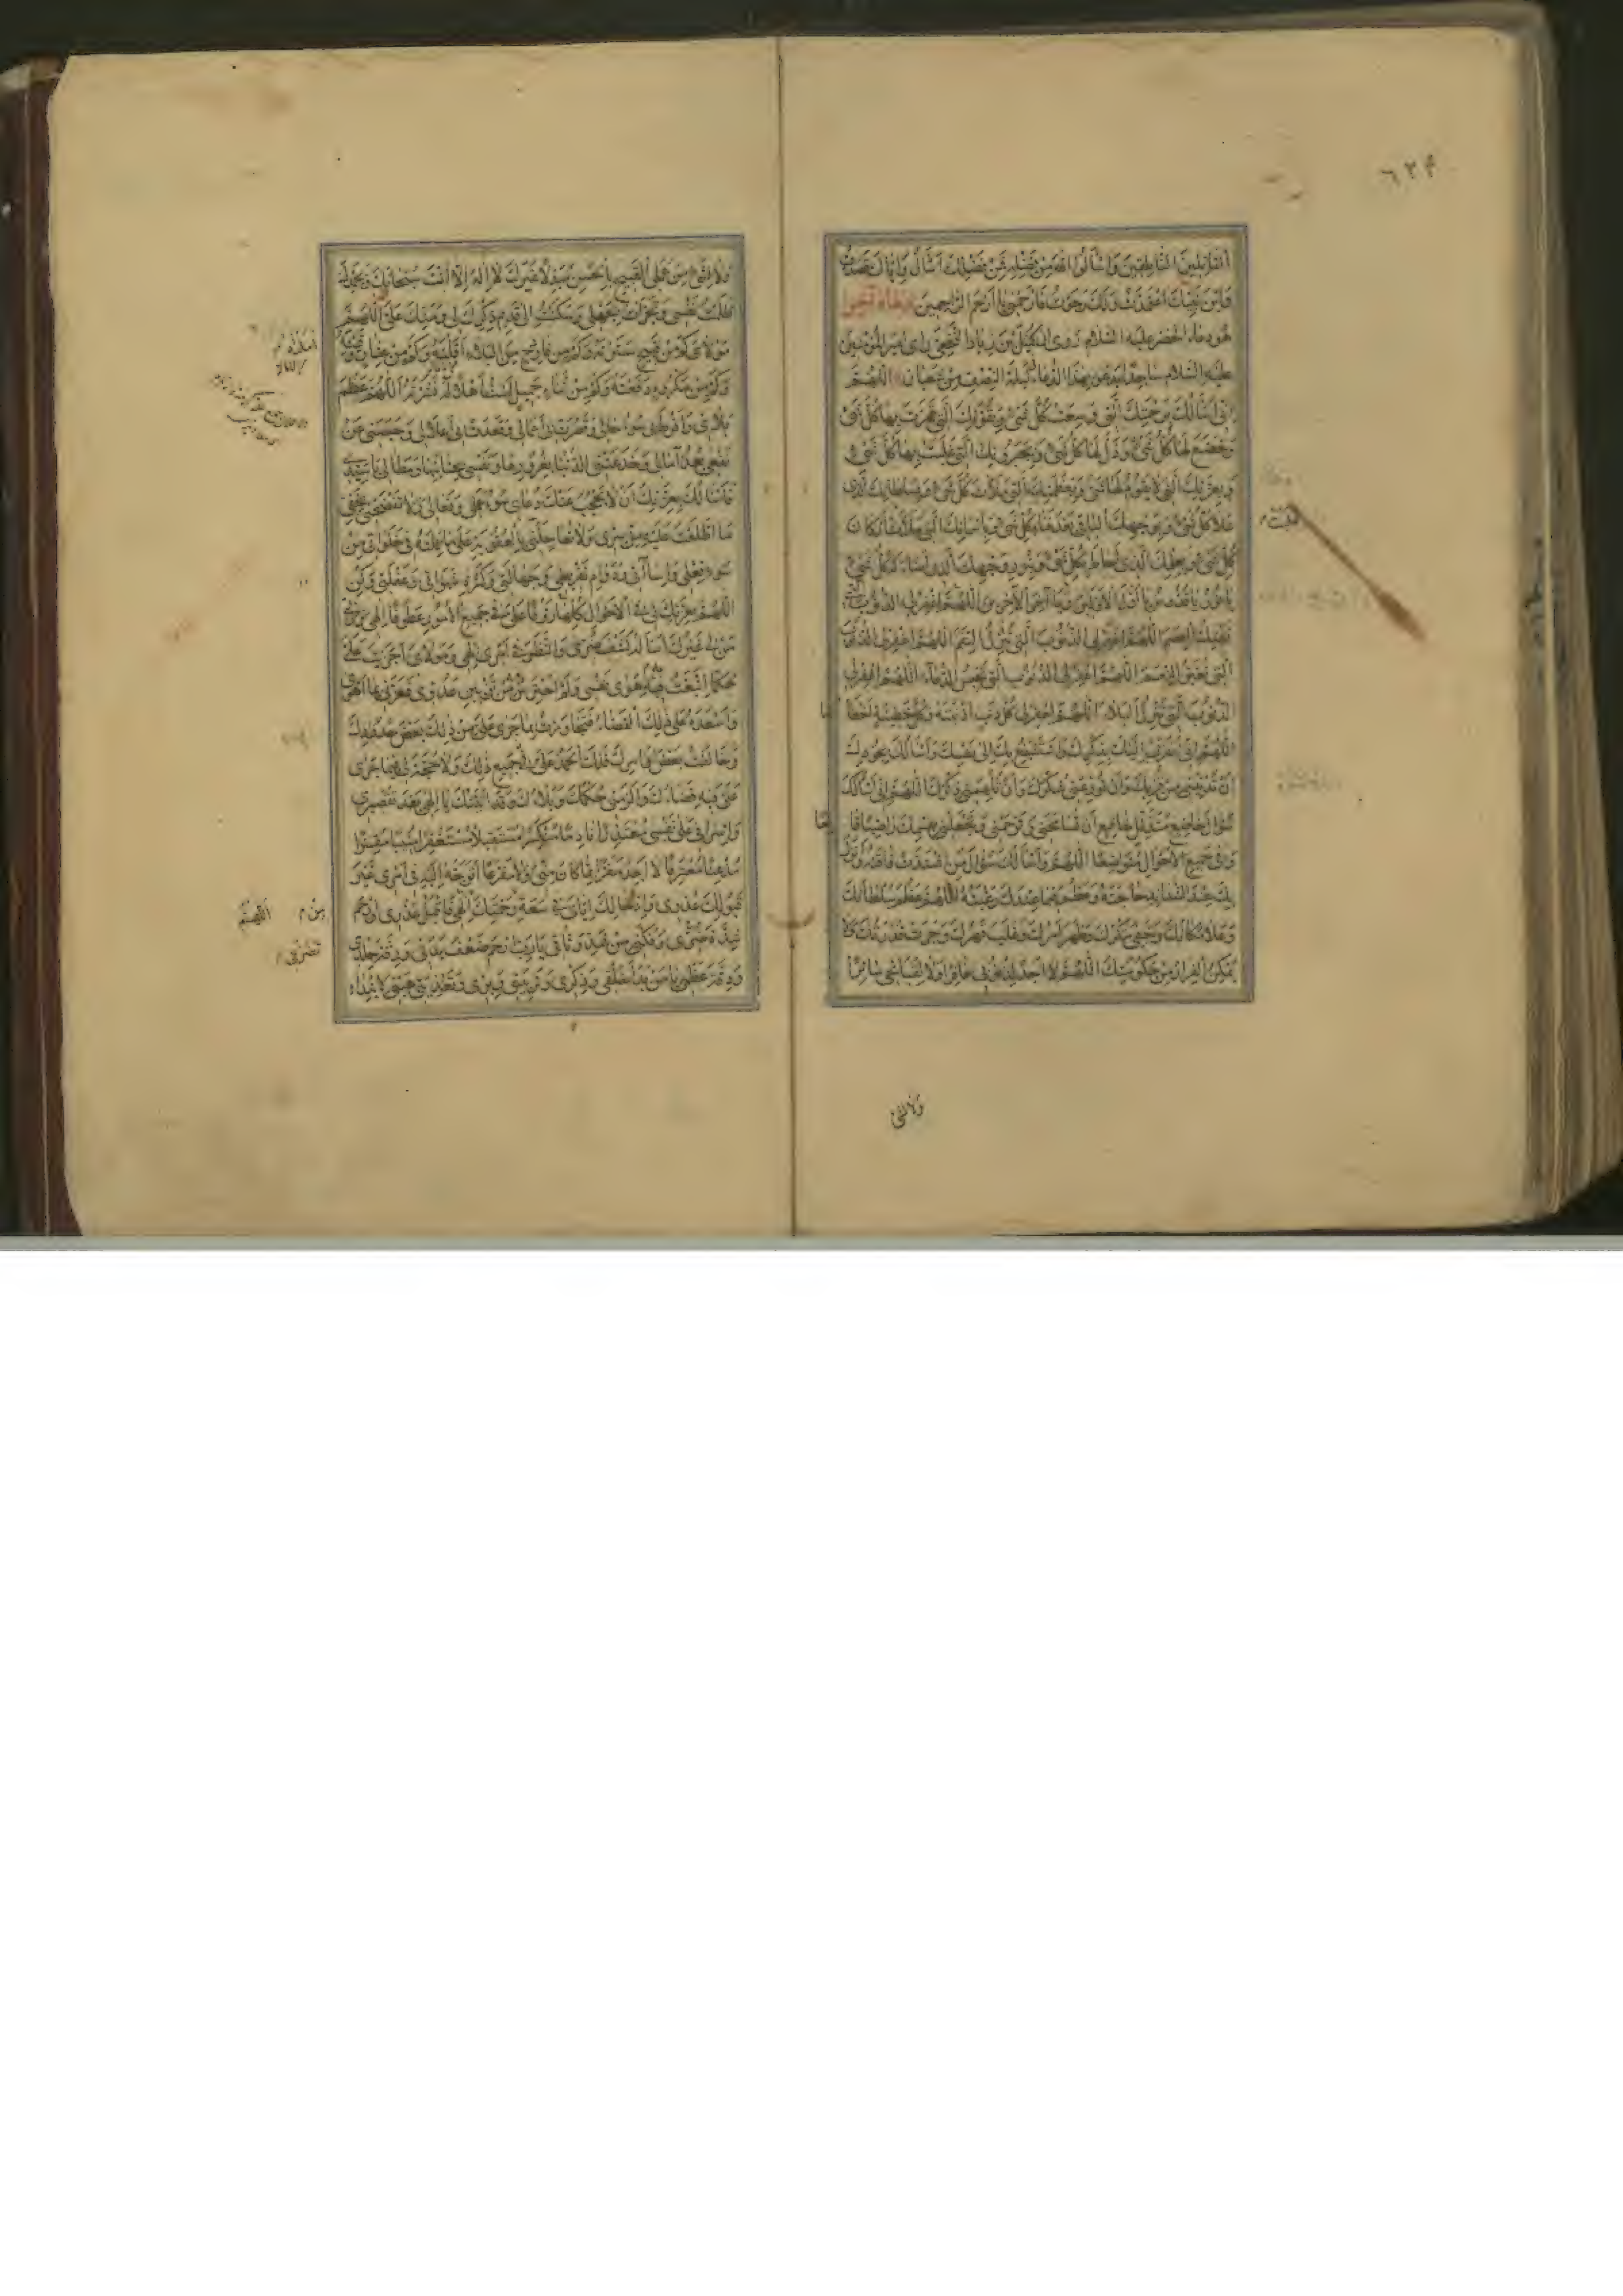 القائلين الناطقين واسألوا الله من فضله فمن فضلك اسأل واياك قصدت
وابن نبيك اعتمدت ولك رجوت فارحمني يا ارحم الراحمين دعاء آخر
هو دعاء الخضر عليه السلام روى ان كميل بن زياد النخعي راى امير المؤمنين
عليه السلام ساجدا يدعو بهذا الدعاء ليلة النصف من شعبان اللهم
اني اسألك برحمتك التي وسعت كل شئ وبقوتك التي قهرت بها كل شئ
وخضع لها كل شئ وذل لها كل شئ وبجبروتك التي غلبت بها كل شئ
وبعزتك التي لا يقوم لها شئ وبعظمتك التي ملأت كل شئ وبسلطانك الذي
علا كل شئ وبوجهك الباقي بعد فناء كل شئ وباسمائك التي ملأت اركان
كل شئ وبعلمك الذي احاط بكل شئ وبنور وجهك الذي اضاء له كل شئ
يا نور يا قدوس يا اول الاولين ويا آخر الآخرين اللهم اغفر لي الذنوب التي
تهتك العصم اللهم اغفر لي الذنوب التي تنزل النقم اللهم اغفر لي الذنوب
التي تغير النعم اللهم اغفر لي الذنوب التي تحبس الدعاء اللهم اغفر لي
الذنوب التي تنزل البلاء اللهم اغفر لي كل ذنب اذنبته وكل خطيئة اخطأ تها
اللهم اني اتقرب اليك بذكرك واستشفع بك الى نفسك واسألك بجودك
ان تدنيني من قربك وان توزعني شكرك وان تلهمني ذكرك اللهم اني اسألك
سؤال خاضع متذلل خاشع ان تسامحني وترحمني وتجعلني بقسمك راضيا قا نعا
وفي جميع الاحوال متواضعا اللهم واسألك سؤال من اشتدت فاقته وانزل
بك عند الشدايد حاجته وعظم فيما عندك رغبته اللهم عظم سلطانك
وعلا مكانك وخفي مكرك وظهر امرك وغلب قهرك وجرت قدرتك ولا
يمكن الفرار من حكومتك اللهم لا اجد لذنوبي غافرا ولا لقبائحي ساترا
ولا لشئ
ولا لشئ من عملي القبيح بالحسن مبدلا غيرك لا اله الا انت سبحانك وبحمدك
ظلمت نفسي وتجرأت بجهلي وسكنت الى قديم ذكرك لي ومنك علي اللهم
مولاي كم من قبيح سترته وكم من فادح من البلاء اقلته وكم من عثار وقيته
وكم من مكروه دفعته وكم من ثناء جميل لست اهلا له نشرته اللهم عظم
بلائي وافرط بي سوء حالي وقصرت بي اعمالي وقعدت بي اغلالي وحبسني عن
نفعي بعد آمالي وخدعتني الدنيا بغرورها ونفسي بجنايتها ومطالي يا سيدي
فاسألك بعزتك ان لا يحجب عنك دعائي سوء عملي وفعالي ولا تفضحني بخفي
ما اطلعت عليه من سري ولا تعاجلني بالعقوبة على ما عملته في خلواتي من
سوء فعلي واساءتي ودوام تفريطي وجهالتي وكثرة شهواتي وغفلتي وكن
اللهم بعزتك لي في الاحوال كلها رؤفا وعلي في جميع الامور عطوفا الهي وربي
من لي غيرك اسأله كشف ضري والنظر في امري الهي ومولاي اجريت علي
حكما اتبعت فيه هوى نفسي ولم احترس من تزيين عدوي فغرني بما اهوى
واسعده على ذلك القضاء فتجاوزت بما جرى علي من ذلك بعض حدودك
وخالفت بعض اوامرك فلك الحمد علي في جميع ذلك ولا حجة لي فيما جرى
علي فيه قضاؤك والزمني حكمك وبلاؤك وقد اتيتك يا الهي بعد تقصيري
واسرافي على نفسي معتذرا نادما منكسرا مستقيلا مستغفرا منيبا مقرا
مذعنا معترفا لا اجد مفرا مما كان مني ولا مفزعا اتوجه اليه في امري غير
قبولك عذري وادخالك اياي في سعة رحمتك الهي فاقبل عذري وارحم
شدة ضري وفكني من شد وثاقي يا رب ارحم ضعف بدني ورقة جلدي
ودقة عظمي يا من بدأ خلقي وذكري وتربيتي وبري وتغذيتي هبني لابتداء
من م اللهم